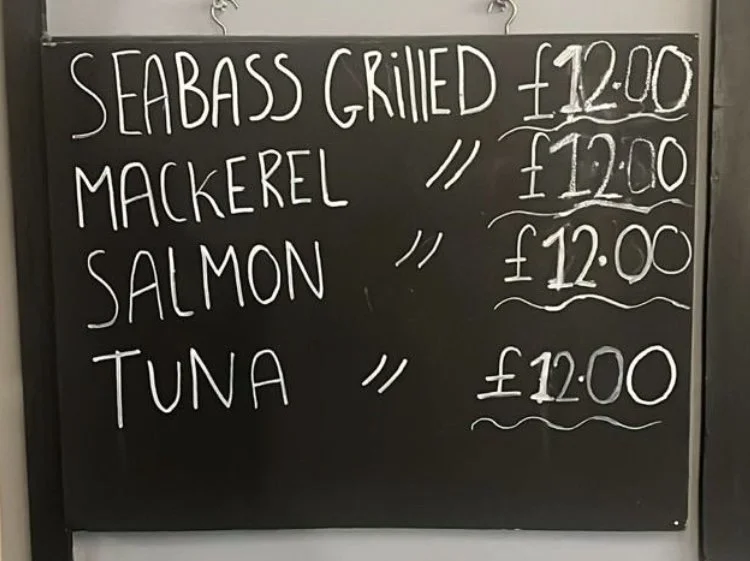 SEABASS GRILLED £12.00
MACKEREL " £12.00
SALMON " £12.00
TUNA " £12.00